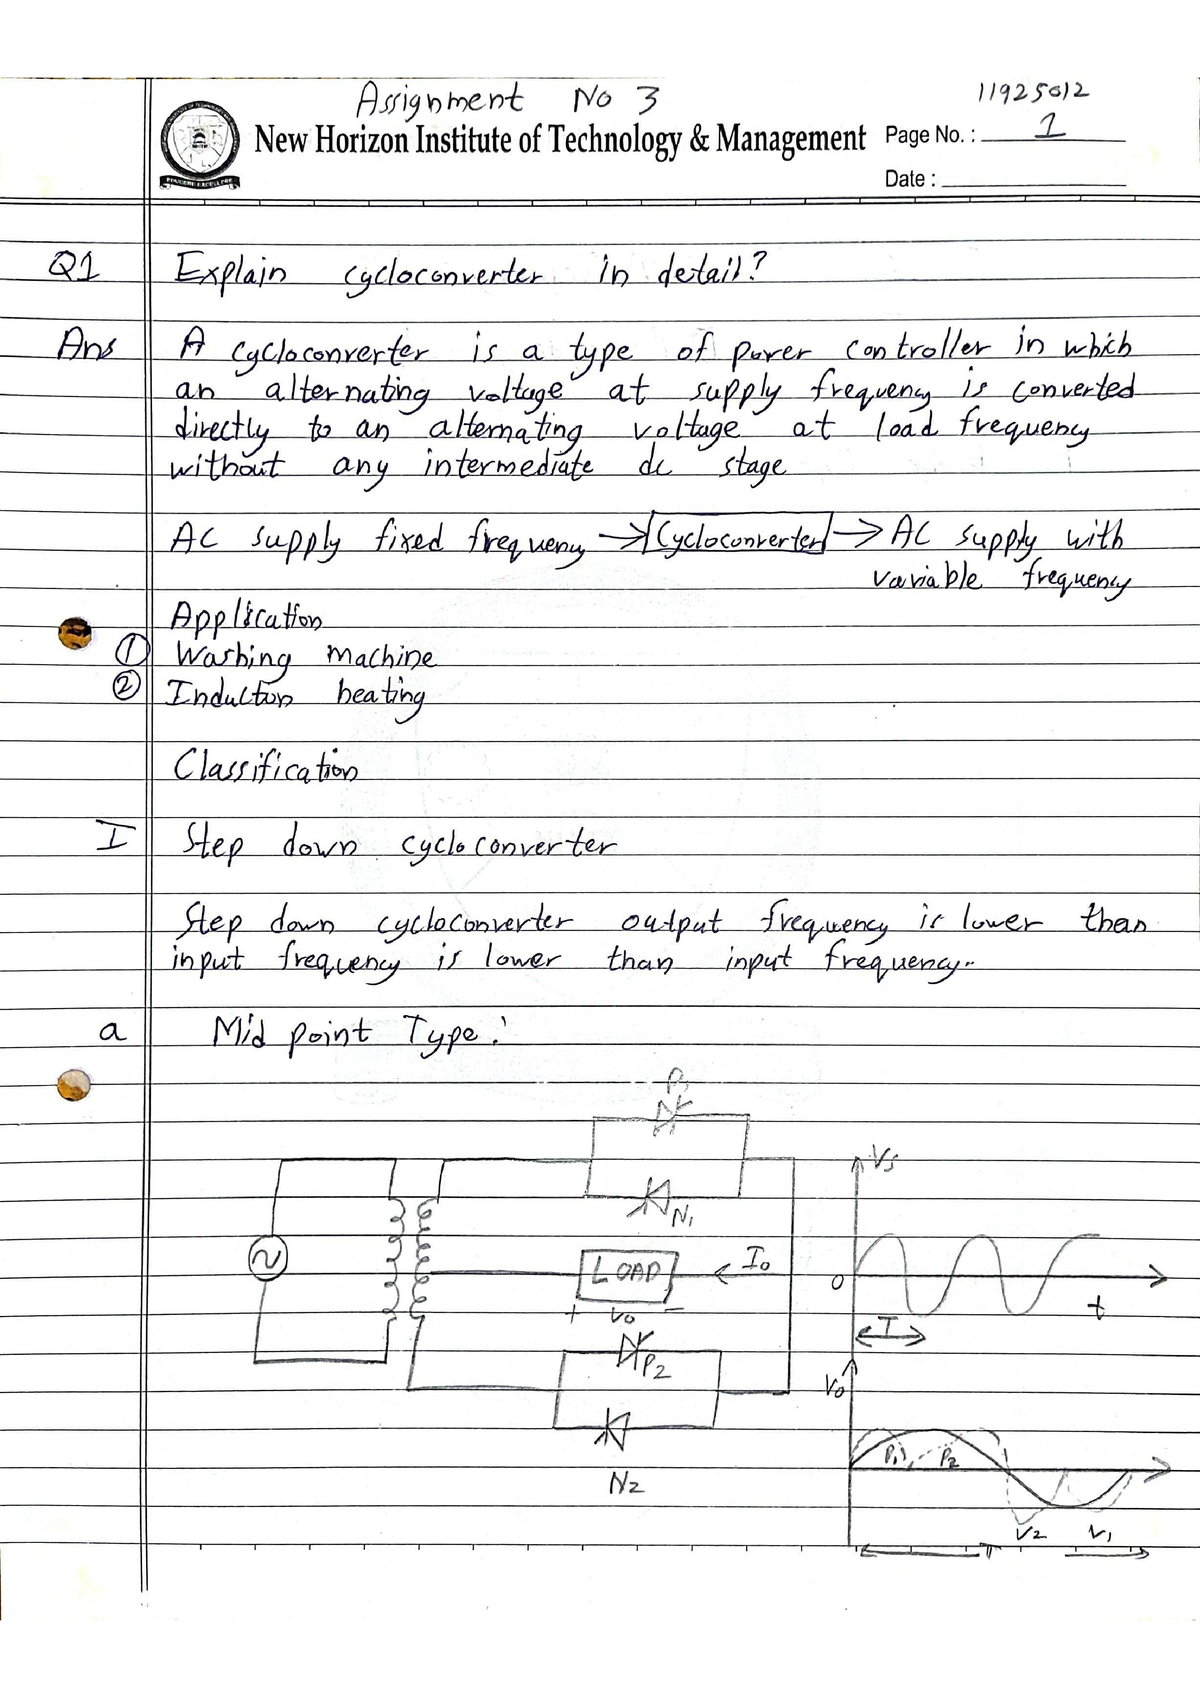 Assignment No 3
11925012
New Horizon Institute of Technology & Management
Page No. : 1
Date :
EXCELLENCE
Q1 Explain cycloconverter in detail?
Ans A cycloconverter is a type of power controller in which
an alternating voltage at supply frequency is converted
directly to an alternating voltage at load frequency
without any intermediate dc stage
AC supply fixed frequency → Cycloconverter → AC supply with
variable frequency
Application
① Washing Machine
② Induction heating
Classification
I Step down cycloconverter
Step down cycloconverter output frequency is lower than
input frequency is lower than input frequency..
a Mid point Type :
P1
N1
LOAD
I0
+ V0 -
P2
N2
Vs
0
t
T
V0
P1 P2
V2 V1
T